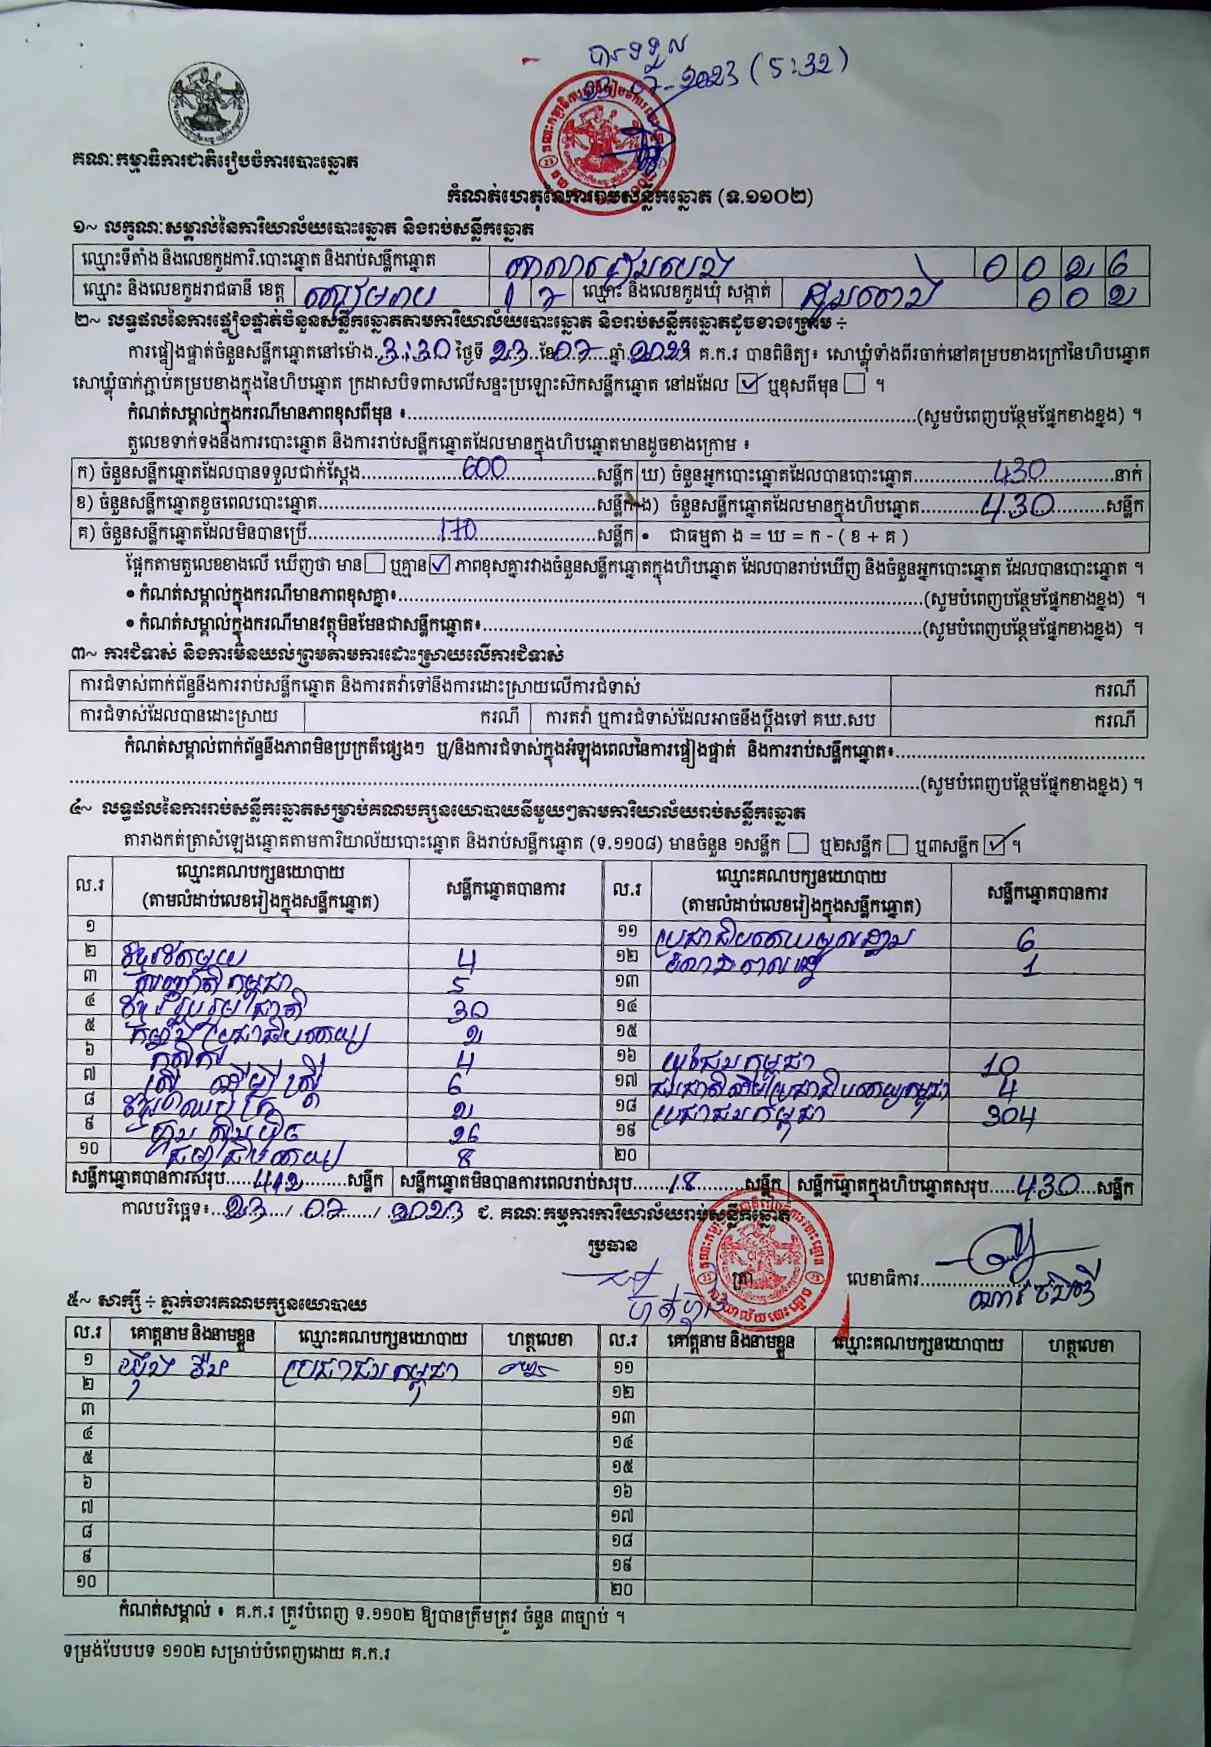 បានទទួល
23-07-2023 (5:32)
គណៈកម្មាធិការជាតិរៀបចំការបោះឆ្នោត
កំណត់ហេតុនៃការរាប់សន្លឹកឆ្នោត (ទ.១១០២)
១~ លក្ខណៈសម្គាល់នៃការិយាល័យបោះឆ្នោត និងរាប់សន្លឹកឆ្នោត
ឈ្មោះទីតាំង និងលេខកូដការិ.បោះឆ្នោត និងរាប់សន្លឹកឆ្នោត 0 0 2 6
ឈ្មោះ និងលេខកូដរាជធានី ខេត្ត សៀមរាប 1 7 ឈ្មោះ និងលេខកូដឃុំ សង្កាត់ 0 0 2
២~ លទ្ធផលនៃការផ្ទៀងផ្ទាត់ចំនួនសន្លឹកឆ្នោតតាមការិយាល័យបោះឆ្នោត និងរាប់សន្លឹកឆ្នោតដូចខាងក្រោម ÷
ការផ្ទៀងផ្ទាត់ចំនួនសន្លឹកឆ្នោតនៅម៉ោង 3:30 ថ្ងៃទី 23 ខែ 07 ឆ្នាំ 2023 គ.ក.រ បានពិនិត្យ៖ សោឃ្លុំទាំងពីរចាក់នៅគម្របខាងក្រៅនៃហិបឆ្នោត
សោឃ្លុំចាក់ភ្ជាប់គម្របខាងក្នុងនៃហិបឆ្នោត ក្រដាសបិទពាសលើសន្ទះប្រឡោះស៊កសន្លឹកឆ្នោត នៅដដែល ☑ ឬខុសពីមុន ☐ ។
កំណត់សម្គាល់ក្នុងករណីមានភាពខុសពីមុន ៖ (សូមបំពេញបន្ថែមផ្នែកខាងខ្នង) ។
តួលេខទាក់ទងនឹងការបោះឆ្នោត និងការរាប់សន្លឹកឆ្នោតដែលមានក្នុងហិបឆ្នោតមានដូចខាងក្រោម ៖
ក) ចំនួនសន្លឹកឆ្នោតដែលបានទទួលជាក់ស្តែង 600 សន្លឹក ឃ) ចំនួនអ្នកបោះឆ្នោតដែលបានបោះឆ្នោត 430 នាក់
ខ) ចំនួនសន្លឹកឆ្នោតខូចពេលបោះឆ្នោត សន្លឹក ង) ចំនួនសន្លឹកឆ្នោតដែលមានក្នុងហិបឆ្នោត 430 សន្លឹក
គ) ចំនួនសន្លឹកឆ្នោតដែលមិនបានប្រើ 170 សន្លឹក • ជាធម្មតា ង = ឃ = ក - ( ខ + គ )
ផ្អែកតាមតួលេខខាងលើ ឃើញថា មាន ☐ ឬគ្មាន ☑ ភាពខុសគ្នារវាងចំនួនសន្លឹកឆ្នោតក្នុងហិបឆ្នោត ដែលបានរាប់ឃើញ និងចំនួនអ្នកបោះឆ្នោត ដែលបានបោះឆ្នោត ។
• កំណត់សម្គាល់ក្នុងករណីមានភាពខុសគ្នា៖ (សូមបំពេញបន្ថែមផ្នែកខាងខ្នង) ។
• កំណត់សម្គាល់ក្នុងករណីមានវត្ថុមិនមែនជាសន្លឹកឆ្នោត៖ (សូមបំពេញបន្ថែមផ្នែកខាងខ្នង) ។
៣~ ការជំទាស់ និងការមិនយល់ព្រមតាមការដោះស្រាយលើការជំទាស់
ការជំទាស់ពាក់ព័ន្ធនឹងការរាប់សន្លឹកឆ្នោត និងការតវ៉ាទៅនឹងការដោះស្រាយលើការជំទាស់ ករណី
ការជំទាស់ដែលបានដោះស្រាយ ករណី ការតវ៉ា ឬការជំទាស់ដែលអាចនឹងប្តឹងទៅ គឃ.សប ករណី
កំណត់សម្គាល់ពាក់ព័ន្ធនឹងភាពមិនប្រក្រតីផ្សេងៗ ឬ/និងការជំទាស់ក្នុងអំឡុងពេលនៃការផ្ទៀងផ្ទាត់ និងការរាប់សន្លឹកឆ្នោត៖
(សូមបំពេញបន្ថែមផ្នែកខាងខ្នង) ។
៤~ លទ្ធផលនៃការរាប់សន្លឹកឆ្នោតសម្រាប់គណបក្សនយោបាយនីមួយៗតាមការិយាល័យរាប់សន្លឹកឆ្នោត
តារាងកត់ត្រាសំឡេងឆ្នោតតាមការិយាល័យបោះឆ្នោត និងរាប់សន្លឹកឆ្នោត (ទ.១១០៨) មានចំនួន ១សន្លឹក ☐ ឬ២សន្លឹក ☐ ឬ៣សន្លឹក ☑ ។
ល.រ ឈ្មោះគណបក្សនយោបាយ (តាមលំដាប់លេខរៀងក្នុងសន្លឹកឆ្នោត) សន្លឹកឆ្នោតបានការ ល.រ ឈ្មោះគណបក្សនយោបាយ (តាមលំដាប់លេខរៀងក្នុងសន្លឹកឆ្នោត) សន្លឹកឆ្នោតបានការ
១ ១១ ប្រជាធិបតេយ្យមូលដ្ឋាន 6
២ ឃ្មុំតែមួយ 4 ១២ 1
៣ កម្ពុជា 5 ១៣
៤ ខ្មែររួបរួមជាតិ 30 ១៤
៥ កម្លាំងប្រជាធិបតេយ្យ 2 ១៥
៦ កសិករ 4 ១៦ យុវជនកម្ពុជា 10
៧ ស្ត្រីដើម្បីស្ត្រី 6 ១៧ ជនជាតិដើមប្រជាធិបតេយ្យកម្ពុជា 4
៨ 2 ១៨ ប្រជាជនកម្ពុជា 304
៩ ហ៊្វុនស៊ិនប៉ិច 26 ១៩
១០ 8 ២០
សន្លឹកឆ្នោតបានការសរុប 412 សន្លឹក សន្លឹកឆ្នោតមិនបានការពេលរាប់សរុប 18 សន្លឹក សន្លឹកឆ្នោតក្នុងហិបឆ្នោតសរុប 430 សន្លឹក
កាលបរិច្ឆេទ៖ 23 / 07 / 2023 ជ. គណៈកម្មការការិយាល័យរាប់សន្លឹកឆ្នោត
ប្រធាន ត្រា លេខាធិការ
៥~ សាក្សី ÷ ភ្នាក់ងារគណបក្សនយោបាយ
ល.រ គោត្តនាម និងនាមខ្លួន ឈ្មោះគណបក្សនយោបាយ ហត្ថលេខា ល.រ គោត្តនាម និងនាមខ្លួន ឈ្មោះគណបក្សនយោបាយ ហត្ថលេខា
១ ប្រជាជនកម្ពុជា ១១
២ ១២
៣ ១៣
៤ ១៤
៥ ១៥
៦ ១៦
៧ ១៧
៨ ១៨
៩ ១៩
១០ ២០
កំណត់សម្គាល់ ៖ គ.ក.រ ត្រូវបំពេញ ទ.១១០២ ឱ្យបានត្រឹមត្រូវ ចំនួន ៣ច្បាប់ ។
ទម្រង់បែបបទ ១១០២ សម្រាប់បំពេញដោយ គ.ក.រ